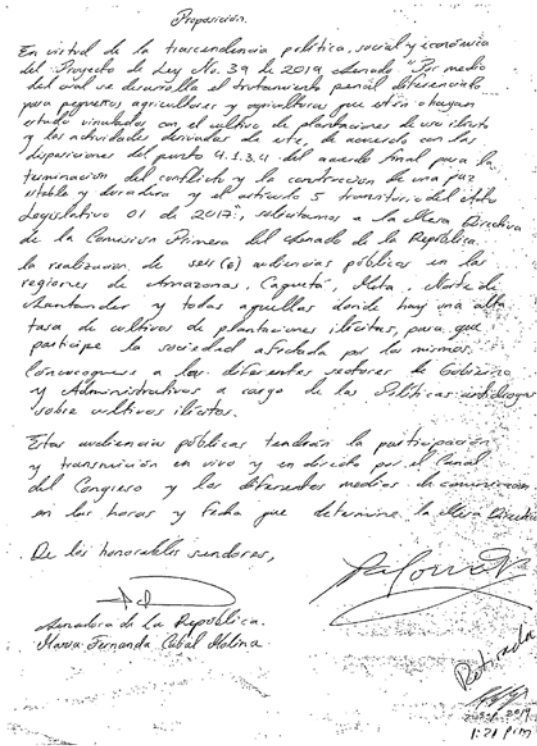 Proposición.
En virtud de la trascendencia política, social y económica
del Proyecto de Ley No. 39 de 2019 Senado "Por medio
del cual se desarrolla el tratamiento penal diferenciado
para pequeños agricultores y agricultoras que estén o hayan
estado vinculados con el cultivo de plantaciones de uso ilícito
y las actividades derivadas de este, de acuerdo con las
disposiciones del punto 4.1.3.4 del acuerdo final para la
terminación del conflicto y la construcción de una paz
estable y duradera y el artículo 5 transitorio del Acto
Legislativo 01 de 2017", solicitamos a la Mesa Directiva
de la Comisión Primera del Senado de la República.
la realización de seis (6) audiencias públicas en las
regiones de Amazonas, Caquetá, Meta, Norte de
Santander y todas aquellas donde hay una alta
tasa de cultivos de plantaciones ilícitas, para que
participe la sociedad afectada por los mismos.
Convoquese a los diferentes sectores de Gobierno
y Administrativos a cargo de las Políticas antidrogas
sobre cultivos ilícitos.
Estas audiencias públicas tendrán la participación
y transmisión en vivo y en directo por el Canal
del Congreso y los diferentes medios de comunicación
en las horas y fecha que determine la Mesa Directiva
De los honorables senadores,
Senadora de la República.
María Fernanda Cabal Molina
Retirada
2019
1:21 pm